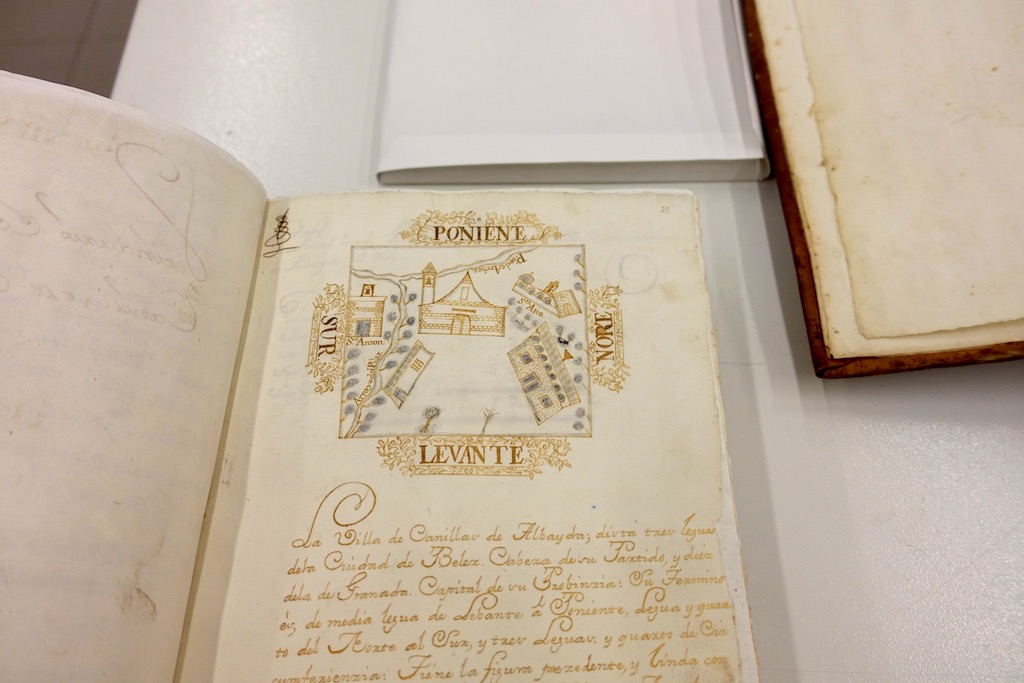 25
PONIENTE
Rio de Arches
SUR
Sn. Anton.
Sta. Ana
NORE
LEVANTE
La Villa de Canillas de Albayda, dista tres leguas
de la Ciudad de Belez. Cabeza de su Partido, y diez
de la de Granada. Capital de su Probinzia: Su Termino
es, de media legua de Lebante â Poniente, Legua y quar
to del Norte al Sur, y tres Leguas, y quarto de Cir
cumferienzia: Tiene la figura prezedente, y Linda con